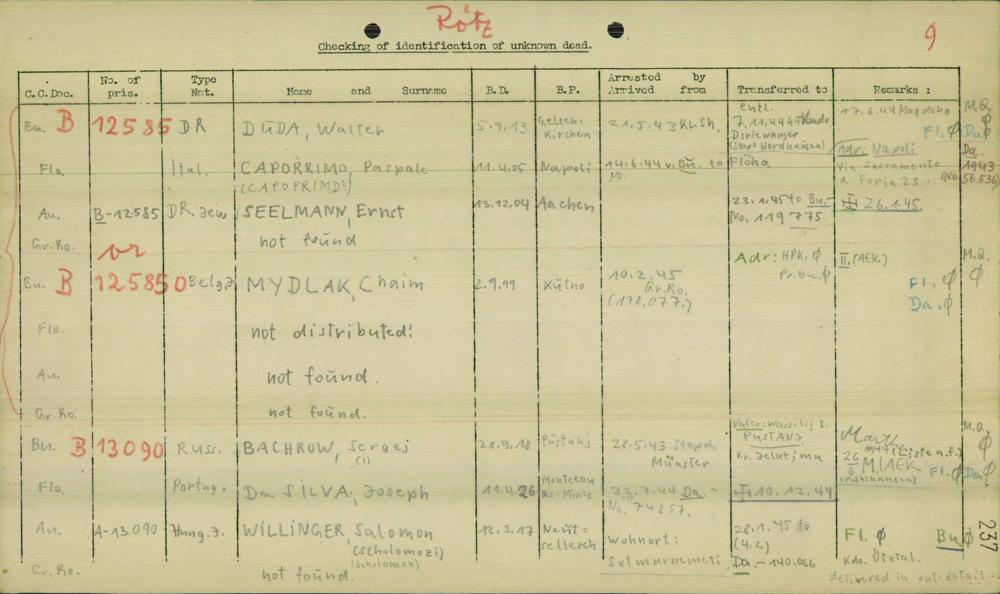 Rötz
9
Checking of identification of unknown dead.
C.C.Doc. No. of pris. Type Nat. Name and Surname B.D. B.P. Arrested by Arrived from Transferred to Remarks :
Bu. B 12585 DR DUDA, Walter 5.9.13 Gelsen-Kirchen 21.5.43 entl. 7.11.44 Dirlewanger 17.6.44 Magdebg. Fl. Ø Da Ø M.Q. Ø
Flo. Ital. CAPORRIMO, Paspale 11.4.05 Napoli 14.6.44 v. Bu. to Flöha Adr: Napoli Da.
(CAPOPRIMO?) No. Via Sacramento a Foria 23. 1943 56.536
Au. B-12585 DR. Jew SEELMANN, Ernst 13.12.04 Aachen 23.1.45 to Bu.- 26.1.45
No. 119775
Gr.Ro. not found
or
Bu. B 125850 Belg.J. MYDLAK, Chaim 2.9.99 Kutno 10.2.45 Gr.Ro. (178,077.) Adr: HPK. Ø Pr.Bu. Ø II. (AEK.) Fl. Ø Da. Ø M.Q. Ø
Flo. not distributed!
Au. not found.
Gr.Ro. not found.
Bu. B 13090 Russ. BACHROW, Sergej 28.5.43 Stapol. Münster Vater: Wassilij B. PUSTANJ Kr. Jelatjma 26/6 M.(AEK Fl. Ø Da Ø M.Q. Ø
Flo. Portug. Da SILVA, Joseph 11.4.26 Montceau les Mines 23.7.44 Da.- 10.12.44
No. 74857.
Au. A-13.090 Hung.J. WILLINGER, Salomon 12.3.17 Neut= 28.1.45 to Fl. Ø Bu. Ø
(Scholomozi) Wohnort: (4.2.)
(Scholomon) Da.-140.066 Kdo. Ötztal.
Gr.Ro. not found. delivered in out-detail.
237